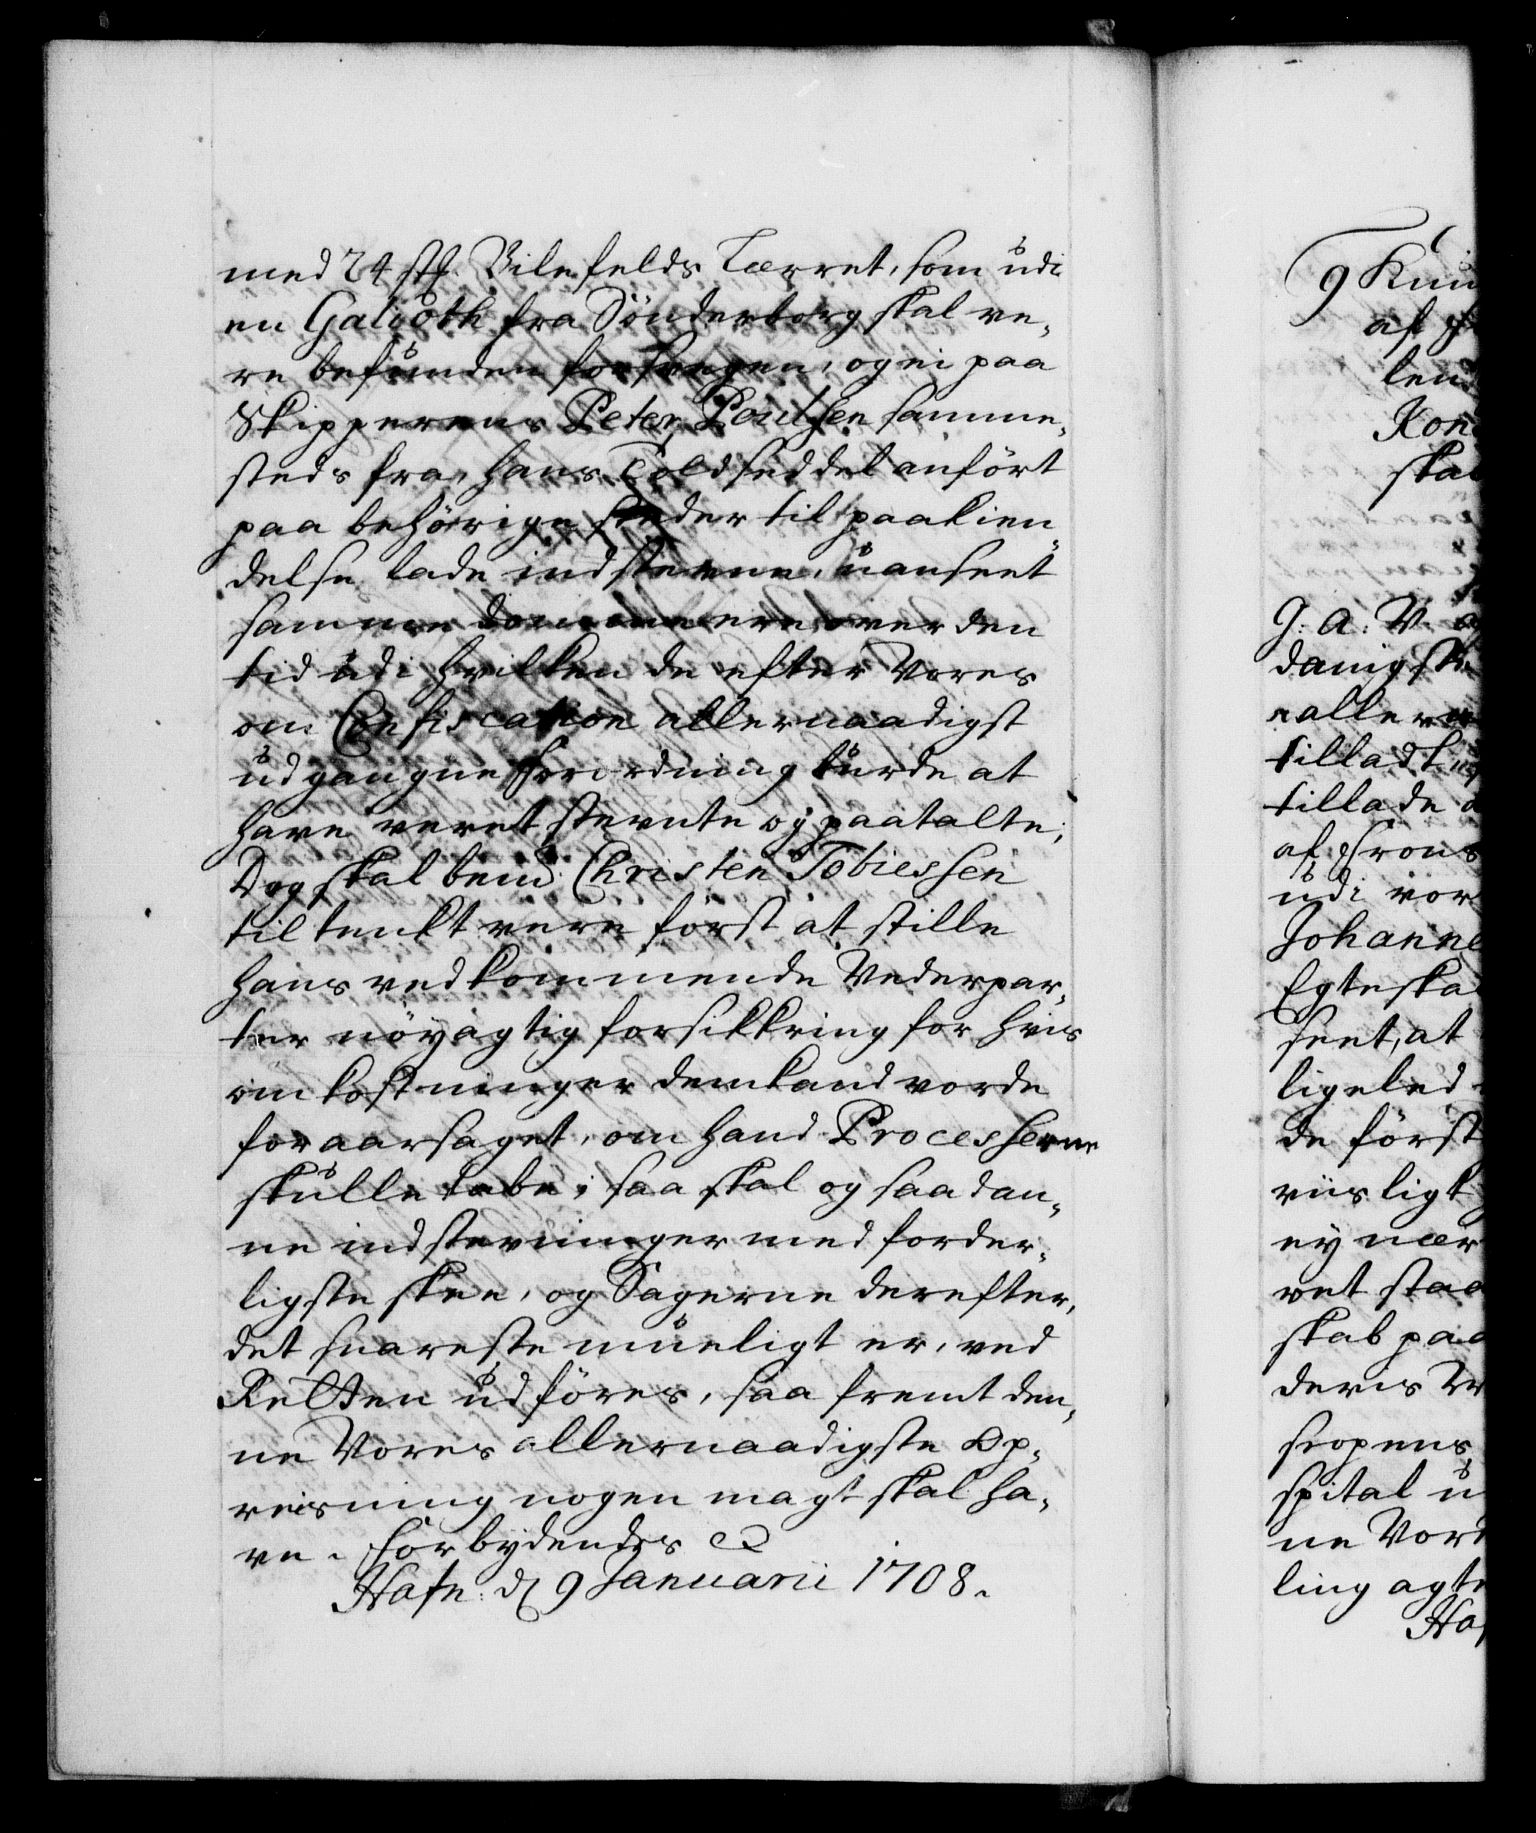 med 24 st. Bilefelds Lærret, som udi
en Galioth fra Sönderborg skal ve-
re befunden forsvegen, og ei paa
Skipperens Peter Poulsen samme-
steds fra, hans Toldseddel anfört
paa behörige steder til paakien-
delse lade indstevne, uanseet
samme domme ere over den
tid udi hvilken de efter Vores
om Confiscation allernaadigst
udgangne Forordning burde at
have veret stevnte og paatalte;
Dog skal bemt Christen Tobiessen
tiltenkt vere först at stille
hans vedkommende Vederpar-
ter nöyagtig forsikkring for hvis
omkostninger dem kand vorde
foraarsaget, om hand Processerne
skulle tabe; saa skal og saadan-
ne indstevninger med forder-
ligste skee, og Sagerne derefter,
det snareste mueligt er, ved
Retten udföres, saa fremt den-
ne Vores allernaadigste Op-
reisning nogen magt skal ha-
ve. Forbydendes
Hafn: d 9 Januarii 1708.
9 Knu
af
len
Kon
ska
J: A: V.
danig
aller
tilladt
tillade
af Trons
udi vor
Johanne
Egteska
seet, at
ligeled
de först
viisligt
ey nær
vet staa
skab paa
deris
spital u
ne Vor
ling agte
Haf